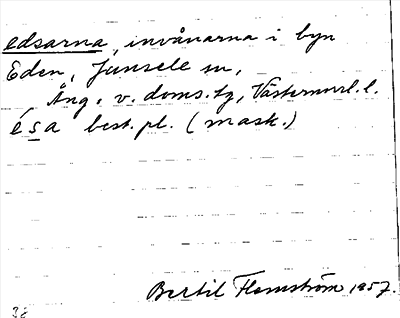 edsarna, invånarna i byn
Eden, Junsele sn,
Ång. v. doms.tg, Västernorrl.l.
ésa best.pl. (mask.)
Bertil Flemström 1957.
38